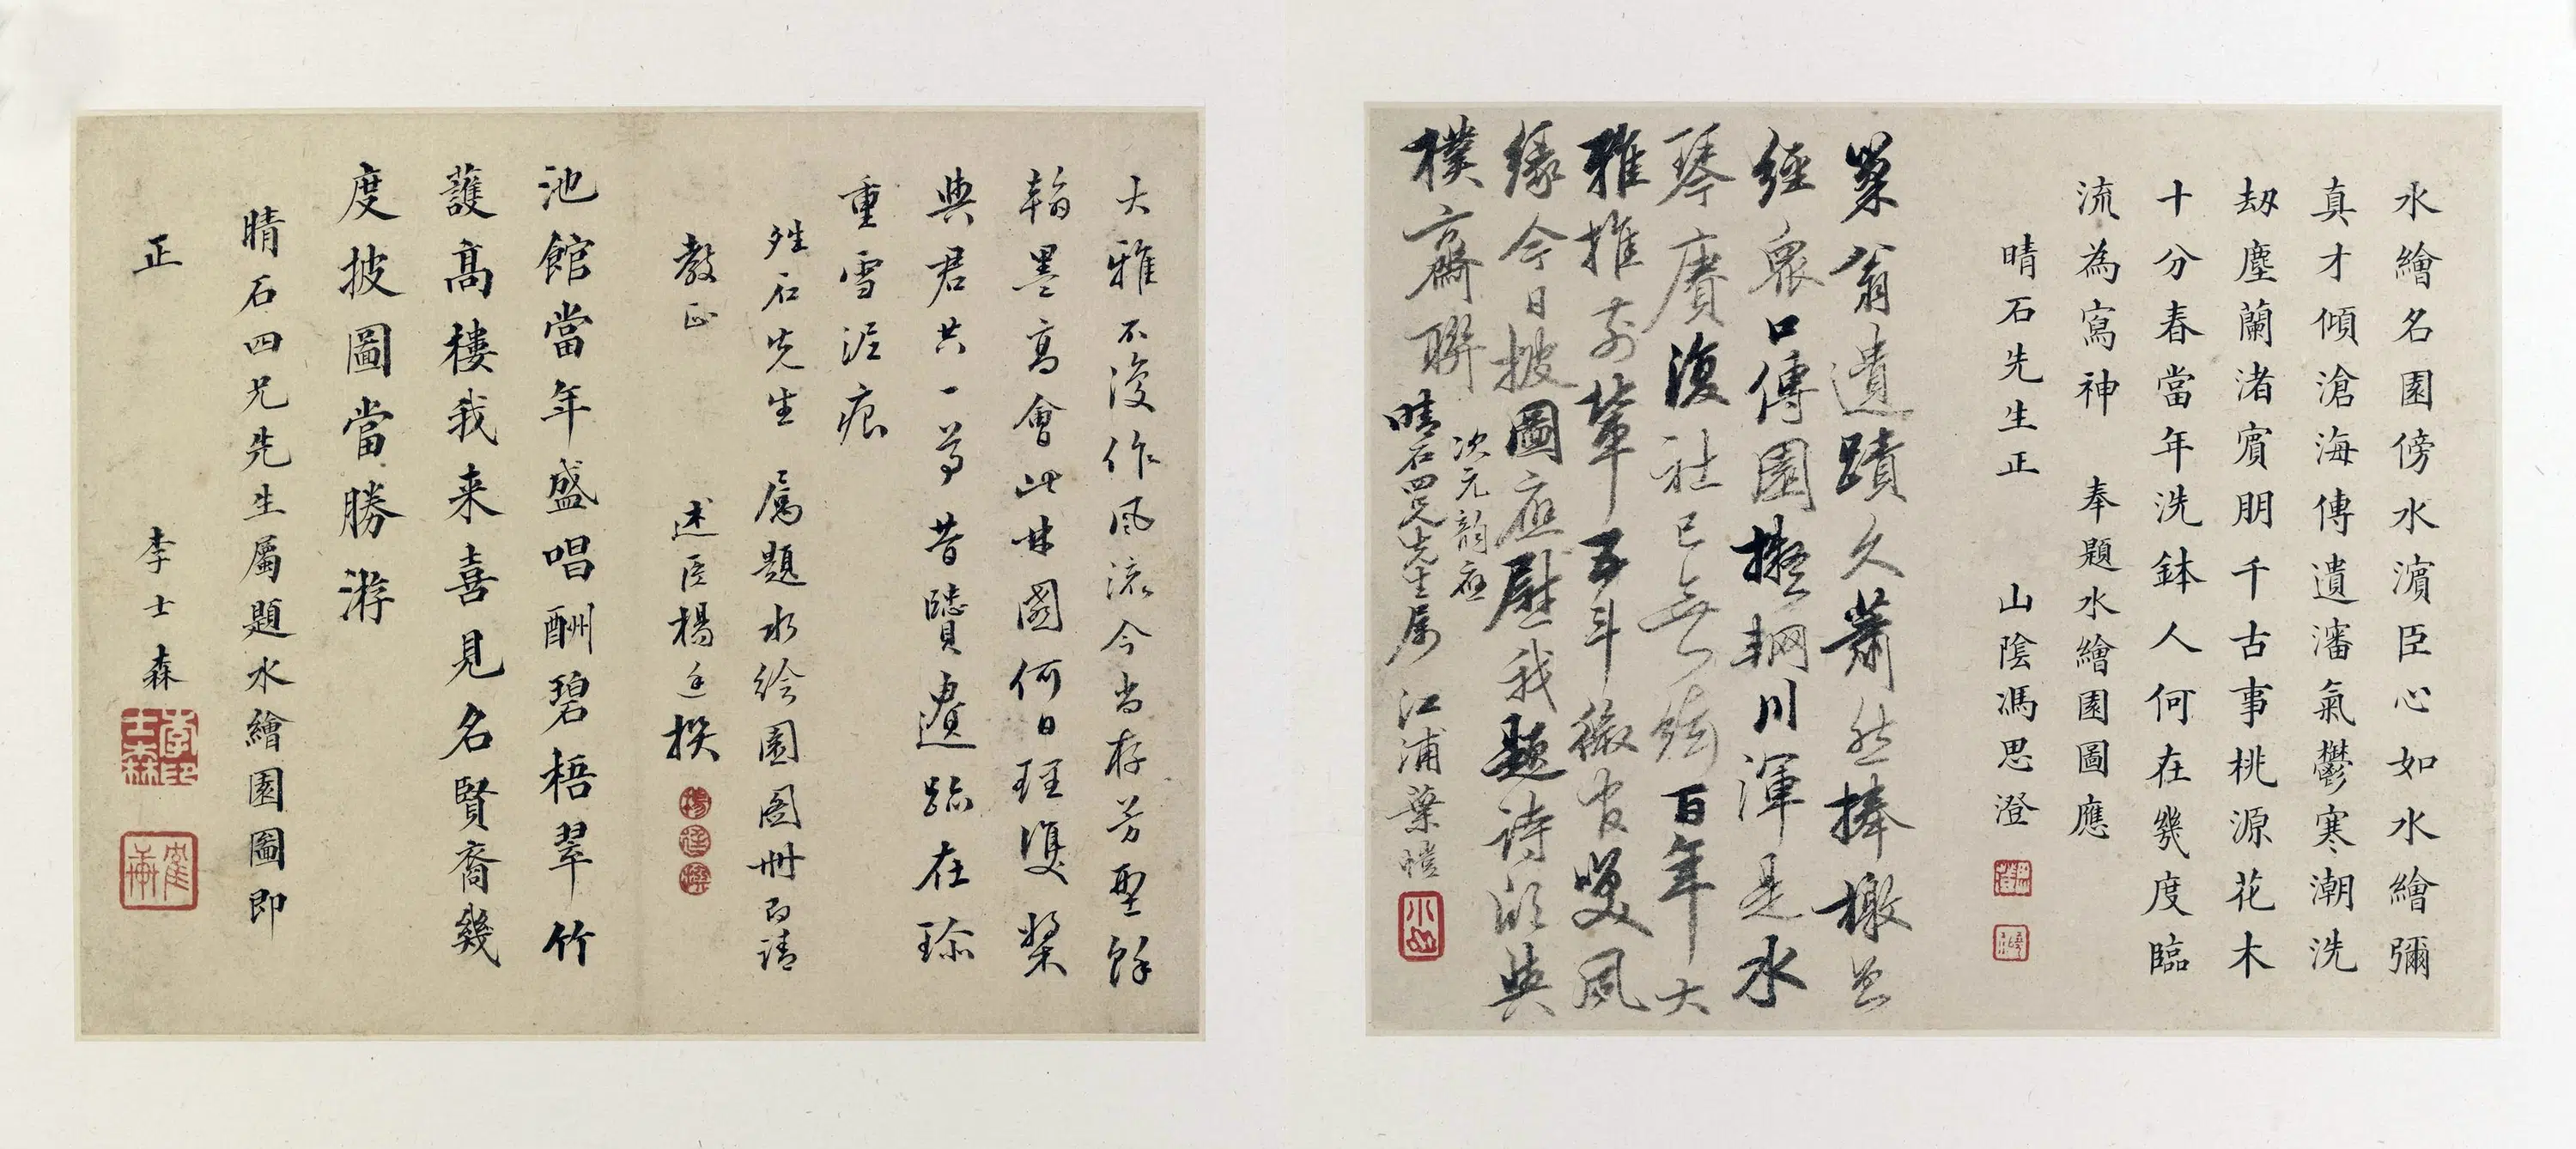 水繪名園傍水濵臣心如水繪彌
真才傾滄海傳遺瀋氣鬱寒潮洗
劫塵蘭渚賓朋千古事桃源花木
十分春當年洗鉢人何在幾度臨
流為寫神 奉題水繪園圖應
晴石先生正 山陰馮思澄
巢翁遺蹟久蕭然捧檄曾
經眾口傳園擬輞川渾是水
琴賡復社已無絃百年大
雅推前輩五斗微官笑夙
緣今日披圖應慰我題詩欣與
樸齋聯
次元韵應
晴石四兄先生属 江浦葉
大雅不復作風流今尚存芳型餘
翰墨高會此林園何日理雙槳
與君共一尊昔賢遺跡在珎
重雪泥痕
姓石先生 属題水绘園圖冊即請
教正 述臣楊廷撰
池館當年盛唱酬碧梧翠竹
護高樓我来喜見名賢裔幾
度披圖當勝游
晴石四兄先生屬題水繪園圖即
正 李士森
李士森印